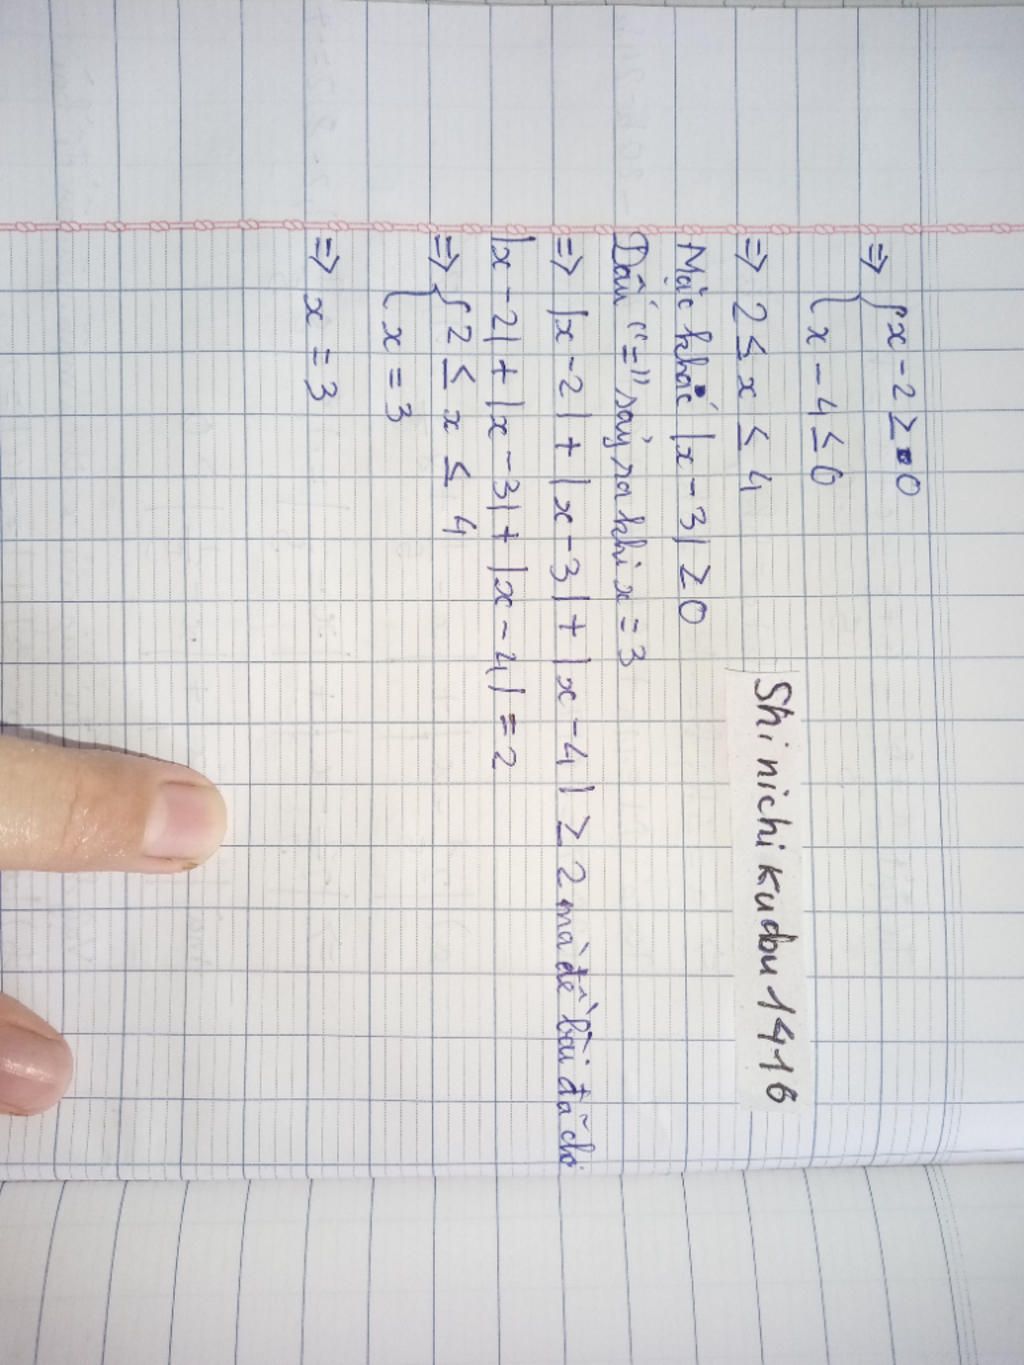 => { x - 2 ≥ 0
{ x - 4 ≤ 0
=> 2 ≤ x ≤ 4
Mặc khác |x - 3| ≥ 0
Dấu "=" sảy ra khi x = 3
=> |x - 2| + |x - 3| + |x - 4| ≥ 2 mà đề bài đã cho
|x - 2| + |x - 3| + |x - 4| = 2
=> { 2 ≤ x ≤ 4
{ x = 3
=> x = 3
Shinichi Kudou 1416